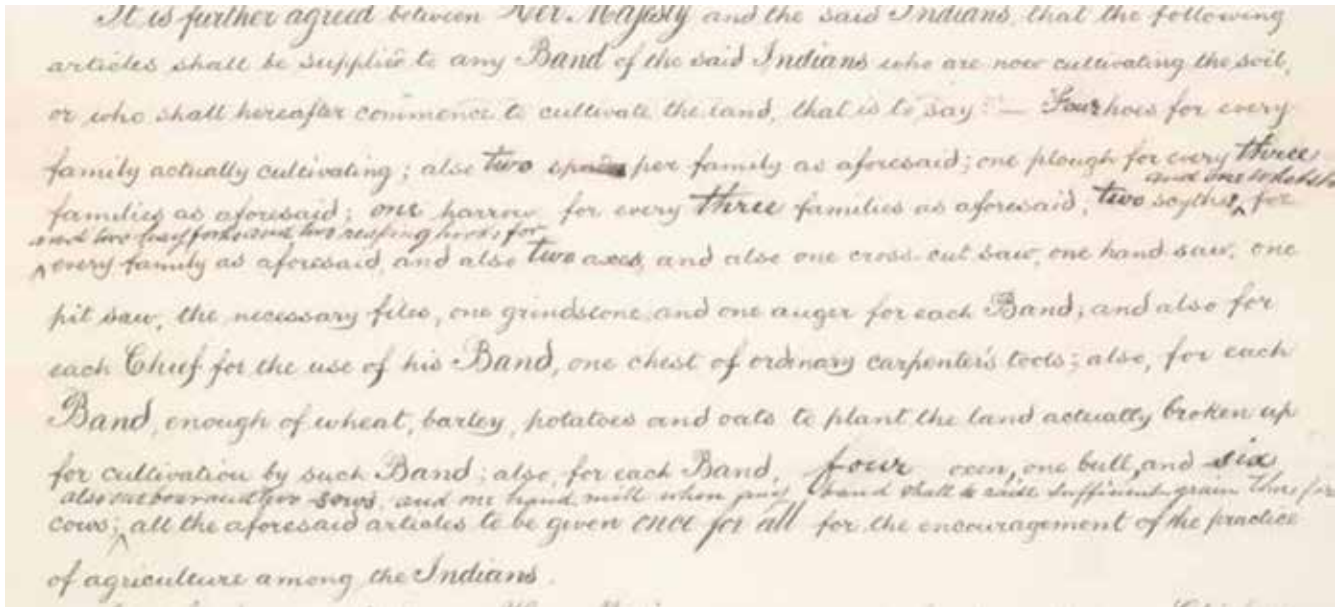 It is further agreed between Her Majesty and the said Indians, that the following
articles shall be supplied to any Band of the said Indians who are now cultivating the soil,
or who shall hereafter commence to cultivate the land, that is to say:— Four hoes for every
family actually cultivating; also two per family as aforesaid; one plough for every three
and one whetstone
families as aforesaid; one harrow for every three families as aforesaid, two scythes, for
and two hay forks and two reaping hooks for
every family as aforesaid, and also two axes, and also one cross-cut saw, one hand saw, one
pit saw, the necessary files, one grindstone and one auger for each Band; and also for
each Chief for the use of his Band, one chest of ordinary carpenter's tools; also, for each
Band, enough of wheat, barley, potatoes and oats to plant the land actually broken up
for cultivation by such Band; also, for each Band, four oxen, one bull, and six
also one boar and two sows, and one hand mill when any Band shall to raise sufficient grain therefor
cows; all the aforesaid articles to be given once for all for the encouragement of the practice
of agriculture among the Indians.